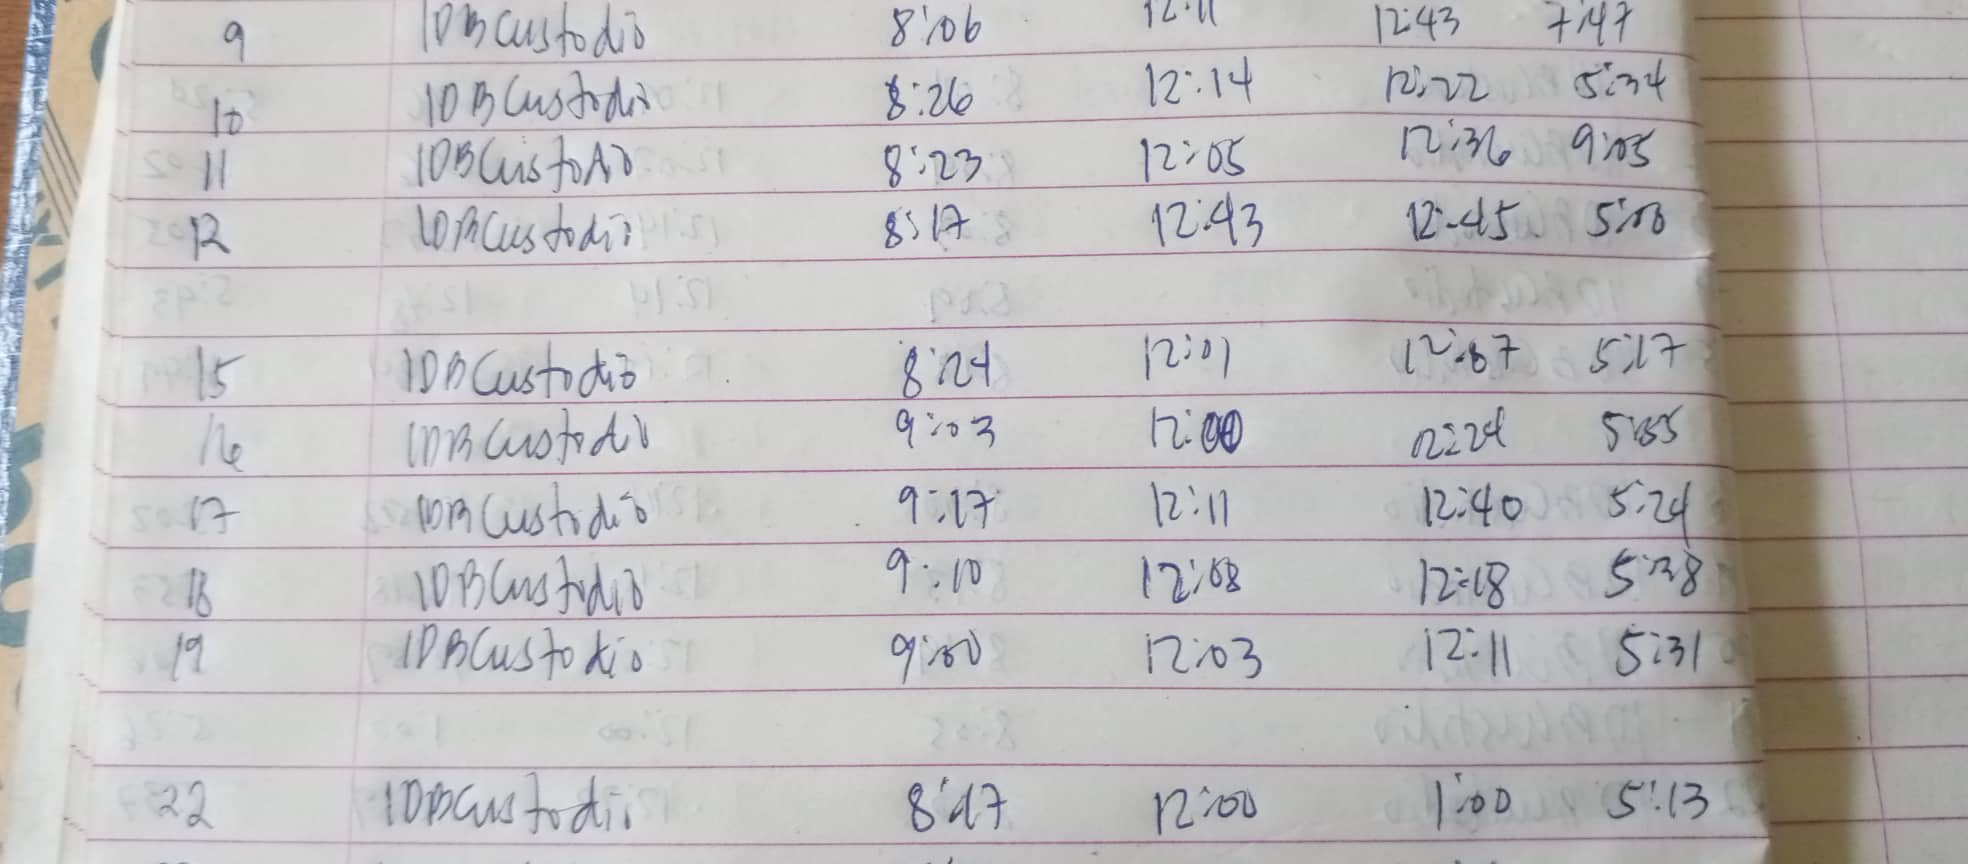 9 IDBCustodio 8:06 12:11 12:43 7:47
10 IDBCustodio 8:26 12:14 12:22 5:34
11 IDBCustodio 8:23 12:05 12:36 9:05
12 IDBCustodio 8:17 12:43 12:45 5:00
15 IDBCustodio 8:24 12:01 5:17
16 IDBCustodio 9:03 12:00 12:24
17 IDBCustodio 9:17 12:11 12:40 5:24
18 IDBCustodio 9:10 12:08 12:18 5:38
19 IDBCustodio 9:00 12:03 12:11 5:31
22 IDBCustodio 12:00 1:00 5:13